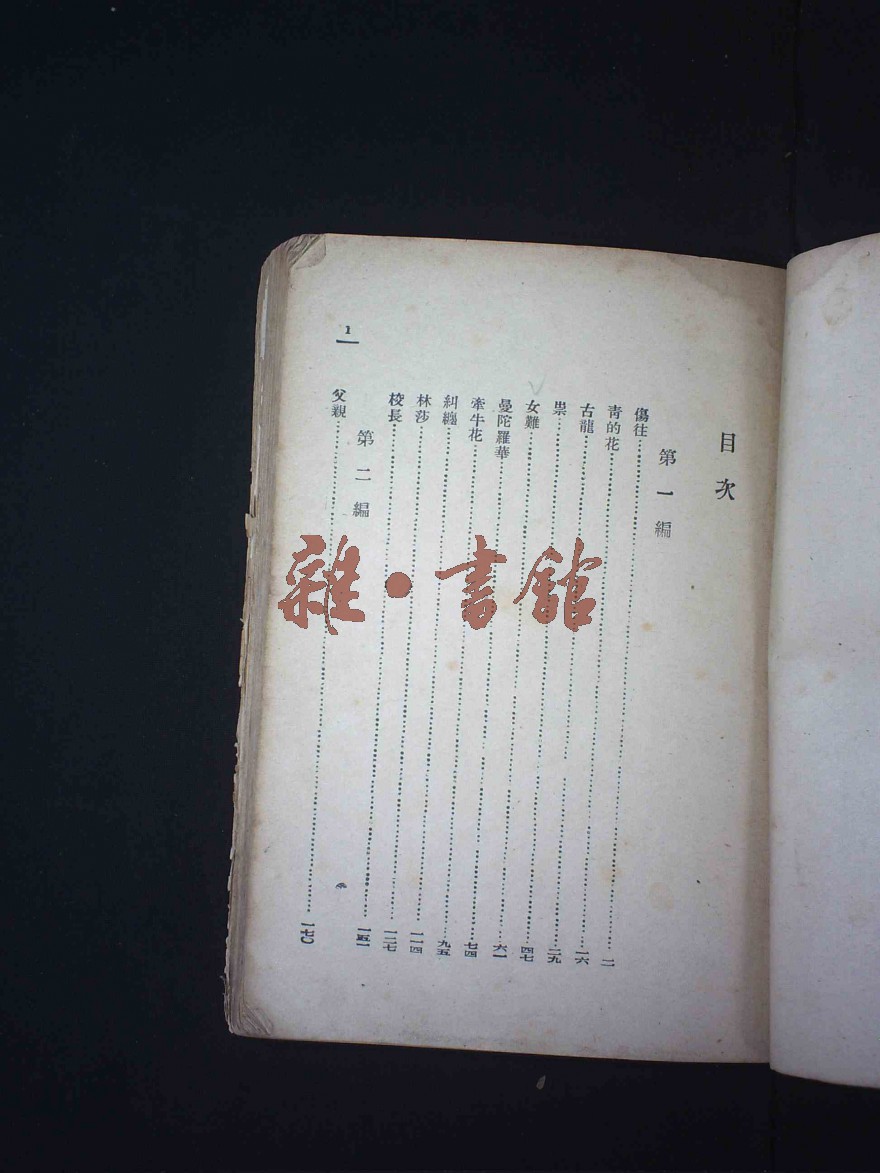 目次
第一編
傷往……二
青的花……一六
古龍……二九
祟……四七
女難……六一
曼陀羅華……七四
牽牛花……九五
糾纏……一一四
林莎……一二七
校長……一五一
第二編
父親……一七〇
1
雜•書館